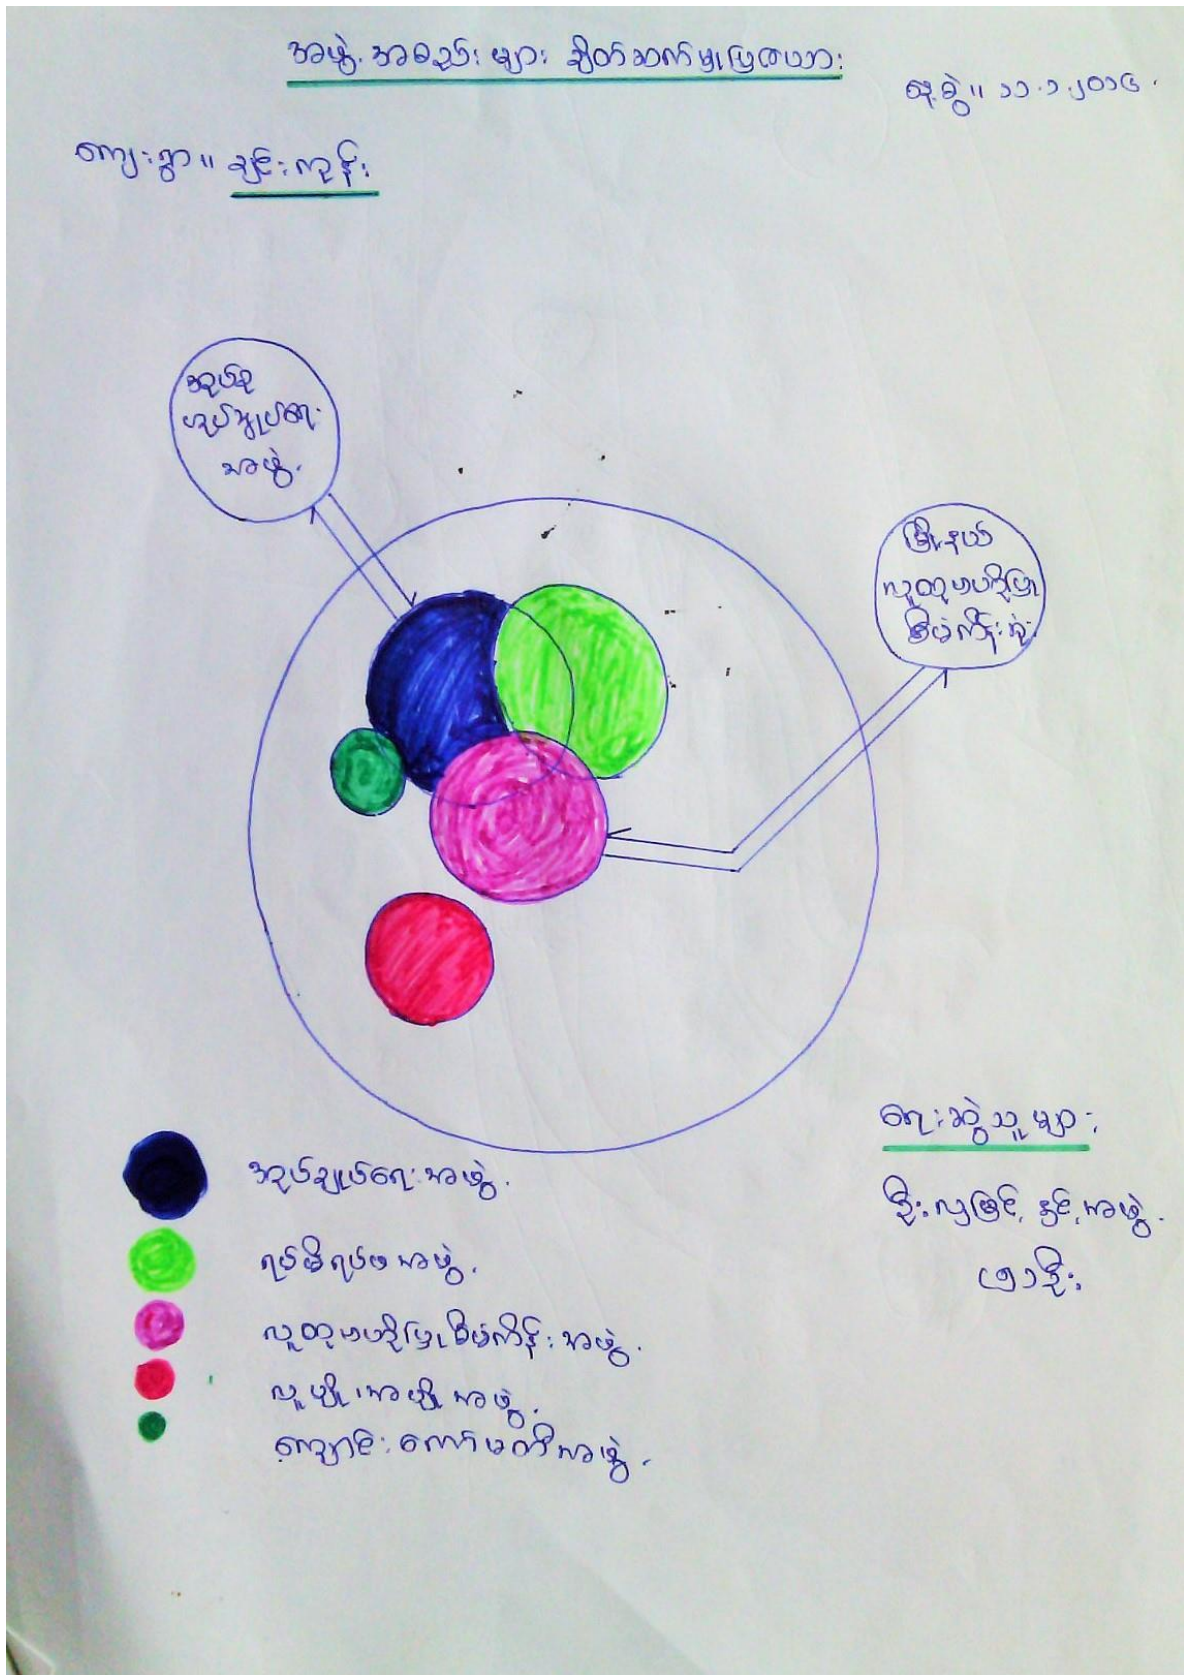 အဖွဲ့အစည်းများ ချိတ်ဆက်မှုပြဇယား
နေ့စွဲ။ ၁၁.၁.၂၀၁၄.
ကျေးရွာ။ ချင်းကုန်း
အုပ်စု
အုပ်ချုပ်ရေး
အဖွဲ့.
မြို့နယ်
လူထုဗဟိုပြု
စီမံကိန်းရုံး
အုပ်ချုပ်ရေးအဖွဲ့.
ရပ်မိရပ်ဖအဖွဲ့.
လူထုဗဟိုပြုစီမံကိန်းအဖွဲ့.
အဖွဲ့.
ကျောင်းကော်မတီအဖွဲ့.
ရေးဆွဲသူများ
ဦးလှမြင့်နှင့်အဖွဲ့.